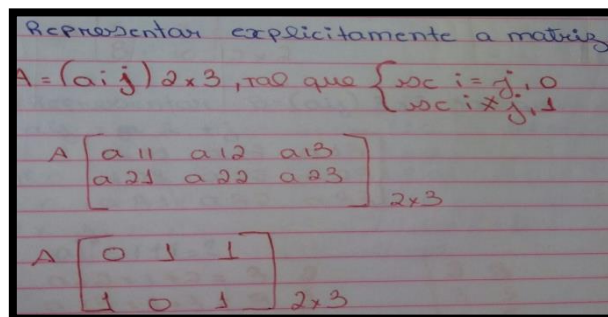 Representar explicitamente a matriz
A = (aij) 2x3, tal que { se i = j, 0
se i ≠ j, 1
A [ a11 a12 a13
a21 a22 a23 ] 2x3
A [ 0 1 1
1 0 1 ] 2x3